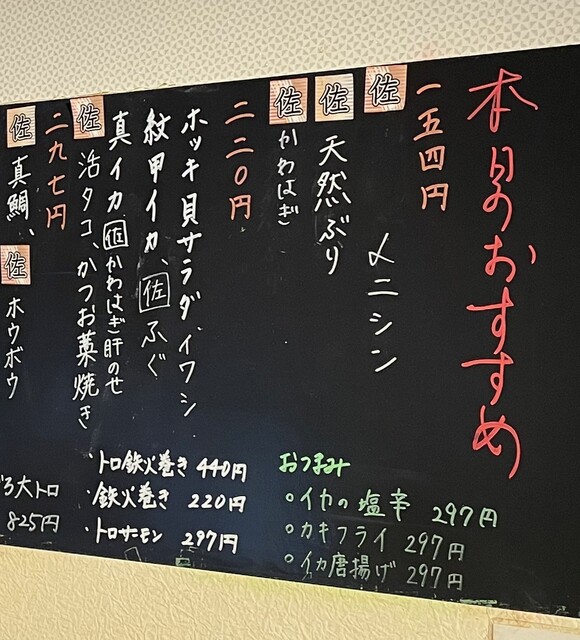 本日のおすすめ
一五四円
佐
〆ニシン
佐 天然ぶり
佐 かわはぎ
二二〇円
ホッキ貝サラダ、イワシ
紋甲イカ、佐ふぐ
真イカ 佐かわはぎ肝のせ
佐 活タコ、かつお藁焼き
二九七円
佐 真鯛、
佐 ホウボウ
おつまみ
○イカの塩辛 297円
○カキフライ 297円
○イカ唐揚げ 297円
・トロ鉄火巻き 440円
・鉄火巻き 220円
・トロサーモン 297円
ろ大トロ
825円